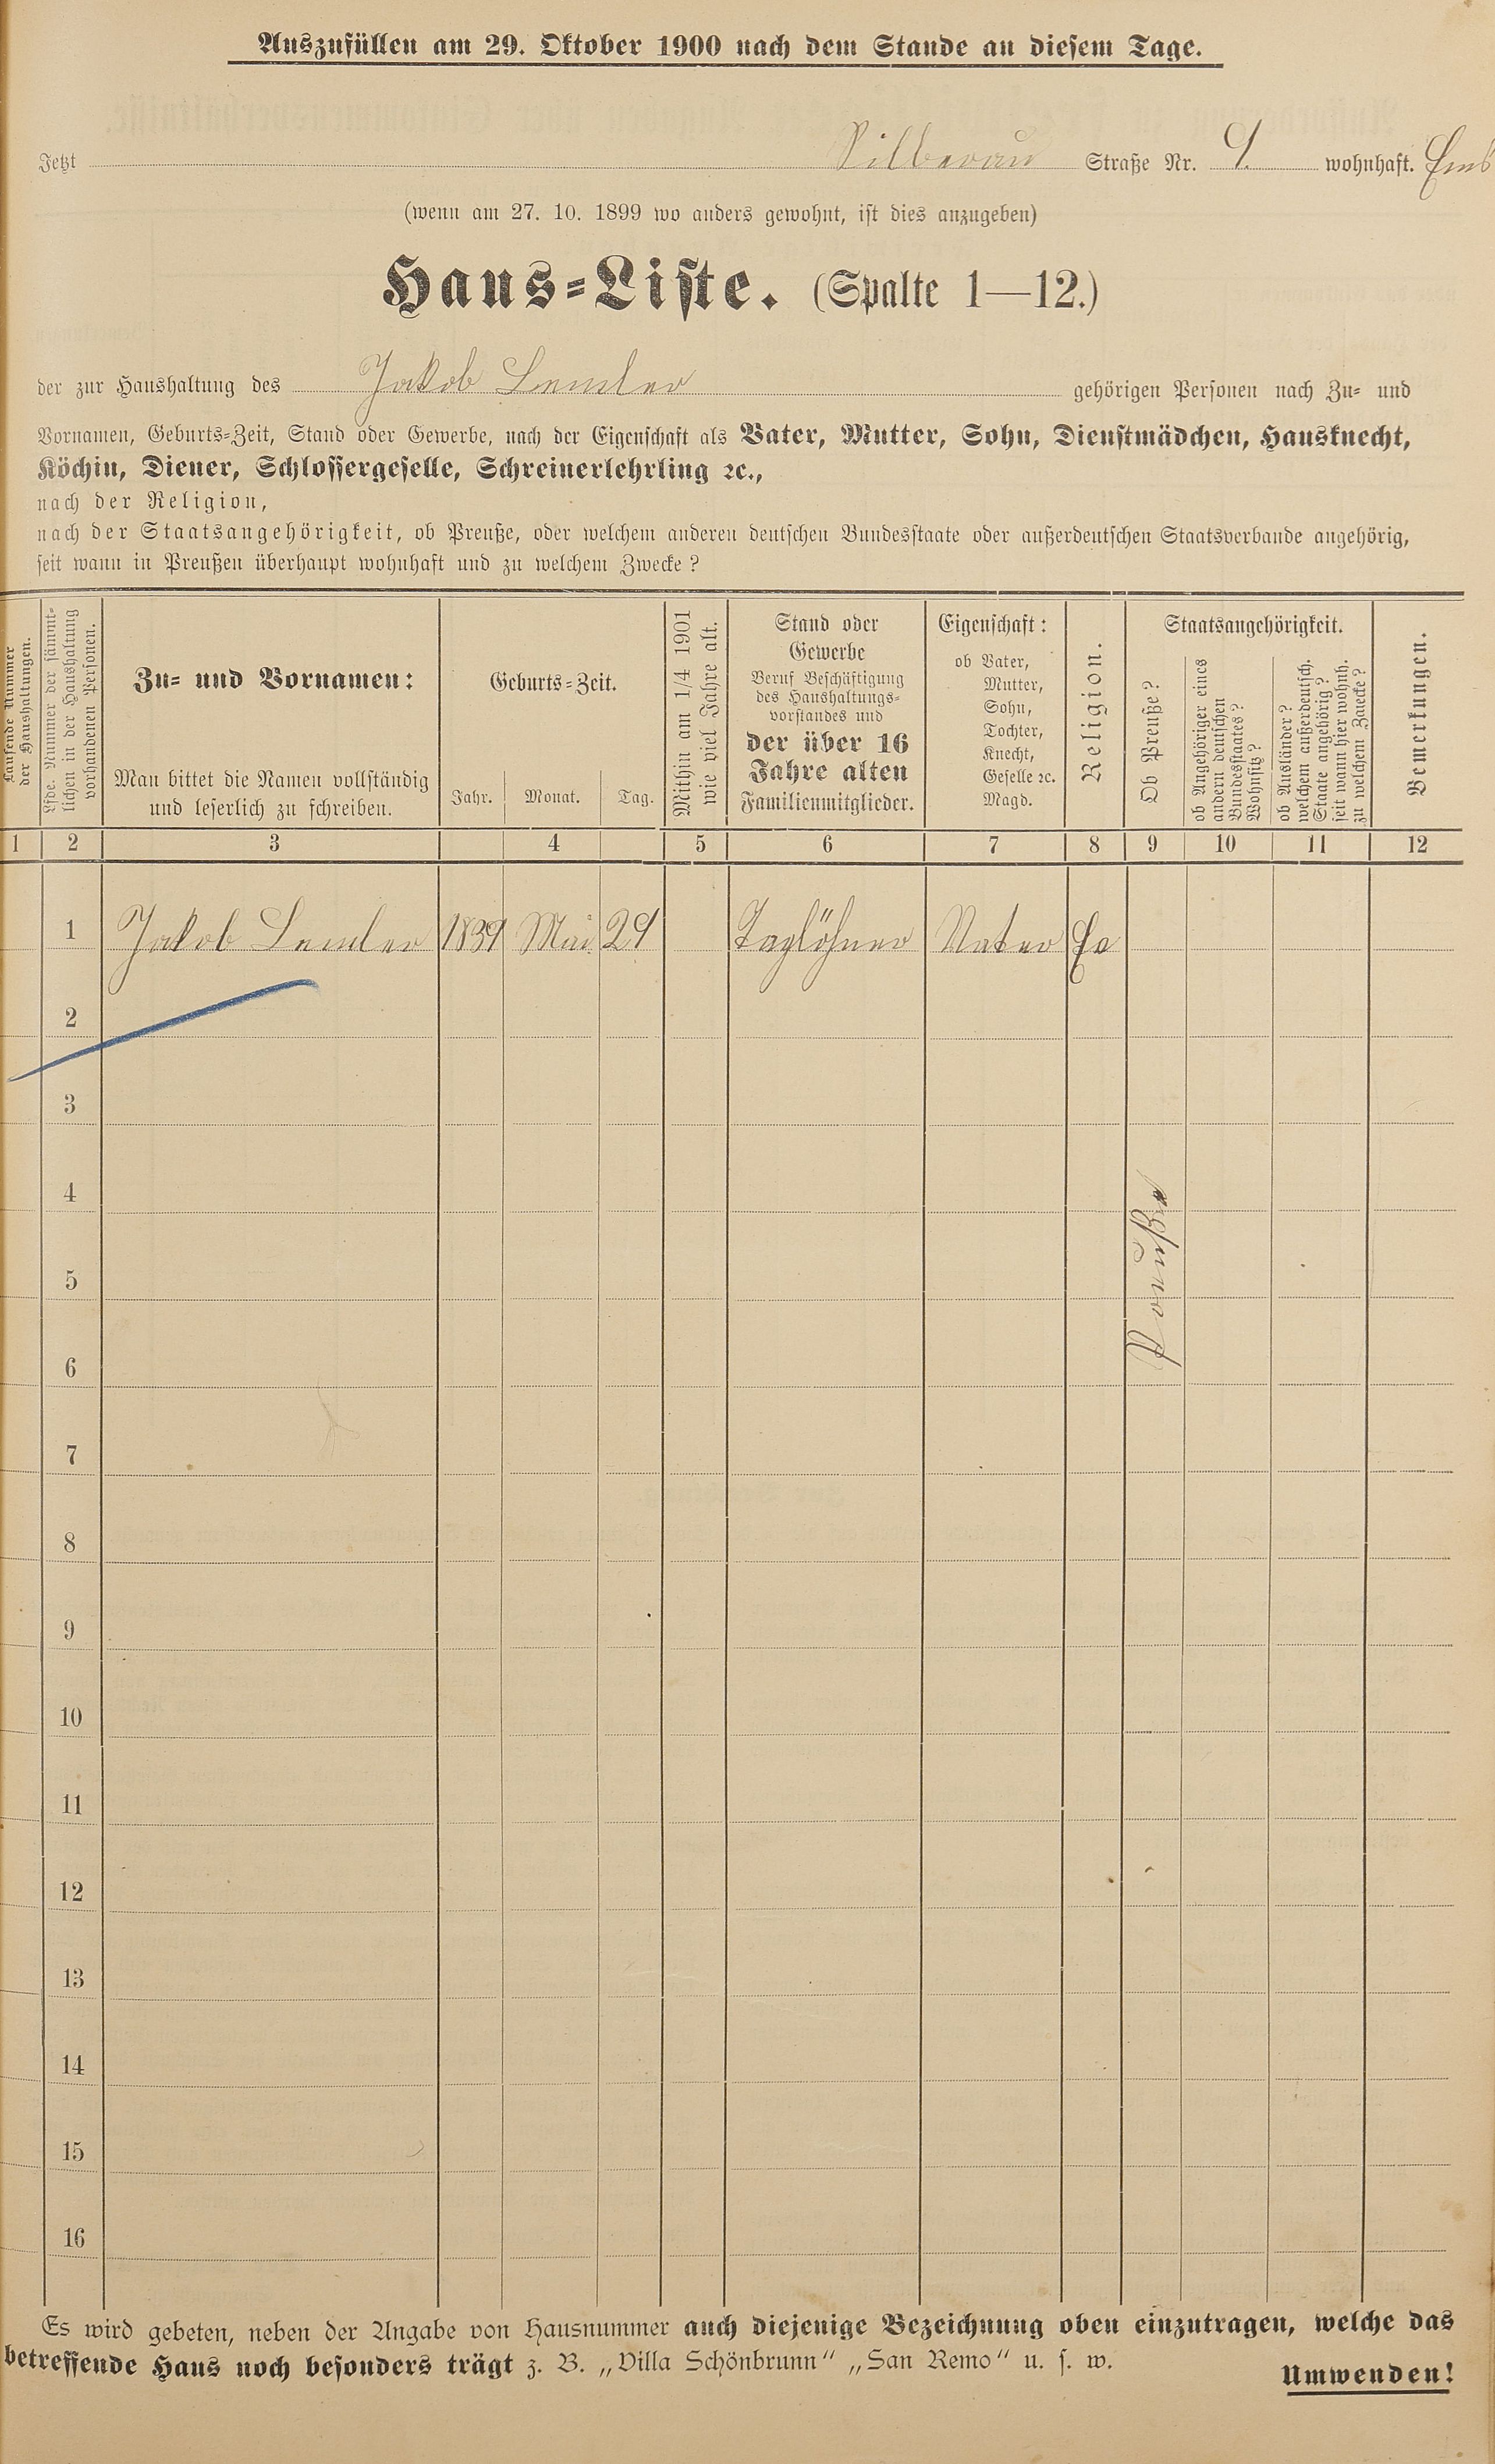 Auszufüllen am 29. Oktober 1900 nach dem Stande an diesem Tage.
Jetzt Silberau Straße Nr. 9. wohnhaft. Ems
(wenn am 27. 10. 1899 wo anders gewohnt, ist dies anzugeben)
Haus-Liste. (Spalte 1—12.)
der zur Haushaltung des Jakob Lemler gehörigen Personen nach Zu- und
Vornamen, Geburts-Zeit, Stand oder Gewerbe, nach der Eigenschaft als Vater, Mutter, Sohn, Dienstmädchen, Hausknecht,
Köchin, Diener, Schlossergeselle, Schreinerlehrling ꝛc.,
nach der Religion,
nach der Staatsangehörigkeit, ob Preuße, oder welchem anderen deutschen Bundesstaate oder außerdeutschen Staatsverbande angehörig,
seit wann in Preußen überhaupt wohnhaft und zu welchem Zwecke?
Laufende Nummer
der Haushaltungen.
Lfde. Nummer der sämmt-
lichen in der Haushaltung
vorhandenen Personen.
Zu- und Vornamen:
Man bittet die Namen vollständig
und leserlich zu schreiben.
Geburts-Zeit.
Jahr. Monat. Tag.
Mithin am 1/4 1901
wie viel Jahre alt.
Stand oder
Gewerbe
Beruf Beschäftigung
des Haushaltungs-
vorstandes und
der über 16
Jahre alten
Familienmitglieder.
Eigenschaft:
ob Vater,
Mutter,
Sohn,
Tochter,
Knecht,
Geselle ꝛc.
Magd.
Religion.
Staatsangehörigkeit.
Ob Preuße?
ob Angehöriger eines
andern deutschen
Bundesstaates?
Wohnsitz?
ob Ausländer?
welchem außerdeutsch.
Staate angehörig?
seit wann hier wohnh.
zu welchem Zwecke?
Bemerkungen.
1 2 3 4 5 6 7 8 9 10 11 12
1 Jakob Lemler 1839 Mai 29 Taglöhner Vater Ev
2
3
4
5
Preuße
6
7
8
9
10
11
12
13
14
15
16
Es wird gebeten, neben der Angabe von Hausnummer auch diejenige Bezeichnung oben einzutragen, welche das
betreffende Haus noch besonders trägt z. B. „Villa Schönbrunn“ „San Remo“ u. s. w.
Umwenden!